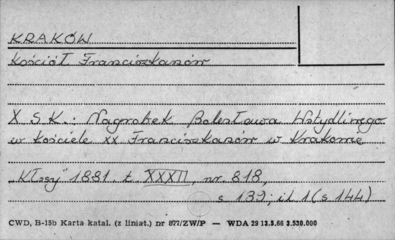 KRAKÓW
Kościół Franciszkanów
X S.K.: Nagrobek Bolesława Wstydliwego
w kościele XX Franciszkanów w Krakowie
„Kłosy" 1881 t. XXXII, nr. 818,
s 139; il 1 (s 144)
CWD, B-15b Karta katal. (z liniat.) nr 877/ZW/P — WDA 29 12.5.66 2.520.000